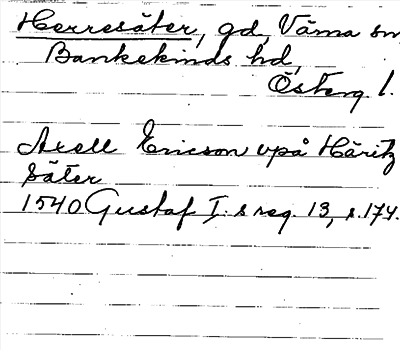 Herresäter, gd, Värna sn
Bankekinds hd,
Österg l.
Axell Ericson vpå Häritz
säter
1540 Gustaf I:s reg. 13, s.174.